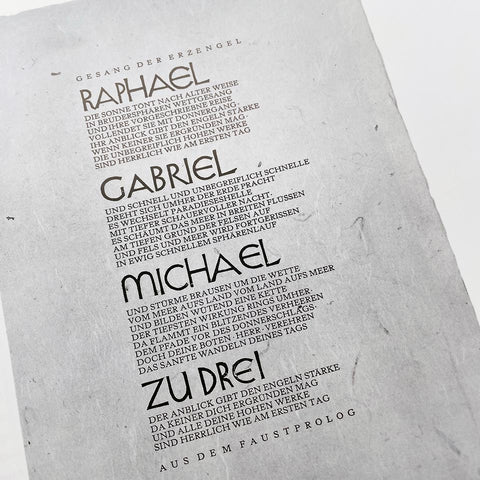 GESANG DER ERZENGEL
RAPHAEL
DIE SONNE TÖNT NACH ALTER WEISE
IN BRUDERSPHÄREN WETTGESANG
UND IHRE VORGESCHRIEBNE REISE
VOLLENDET SIE MIT DONNERGANG.
IHR ANBLICK GIBT DEN ENGELN STÄRKE
WENN KEINER SIE ERGRÜNDEN MAG·
DIE UNBEGREIFLICH HOHEN WERKE
SIND HERRLICH WIE AM ERSTEN TAG
GABRIEL
UND SCHNELL UND UNBEGREIFLICH SCHNELLE
DREHT SICH UMHER DER ERDE PRACHT
ES WECHSELT PARADIESESHELLE
MIT TIEFER SCHAUERVOLLER NACHT.
ES SCHÄUMT DAS MEER IN BREITEN FLÜSSEN
AM TIEFEN GRUND DER FELSEN AUF
UND FELS UND MEER WIRD FORTGERISSEN
IN EWIG SCHNELLEM SPHÄRENLAUF
MICHAEL
UND STÜRME BRAUSEN UM DIE WETTE
VOM MEER AUFS LAND VOM LAND AUFS MEER
UND BILDEN WÜTEND EINE KETTE
DER TIEFSTEN WIRKUNG RINGS UMHER·
DA FLAMMT EIN BLITZENDES VERHEEREN
DEM PFADE VOR DES DONNERSCHLAGS·
DOCH DEINE BOTEN · HERR · VEREHREN
DAS SANFTE WANDELN DEINES TAGS
ZU DREI
DER ANBLICK GIBT DEN ENGELN STÄRKE
DA KEINER DICH ERGRÜNDEN MAG
UND ALLE DEINE HOHEN WERKE
SIND HERRLICH WIE AM ERSTEN TAG
AUS DEM FAUSTPROLOG